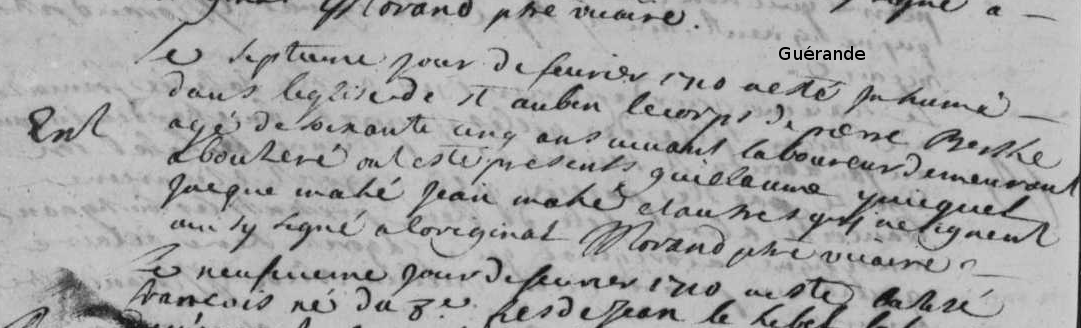 Morand ptre vicaire.
Guérande
Le septieme jour de feuvrier 1710 a esté Inhumé
dans leglise de St aubin le corps de pierre Berthe
Ent
agé de soixante cinq ans vivant laboureur demeurant
a bouzeré ont esté présents guillaume quicquet
Jacque mahé Jean mahé et autres qui ne signent
ainsy signé a loriginal Morand ptre vicaire
Le neufvieme jour de feuvrier 1710 a esté batisé
francois né du 3e. fils de Jean le hebel